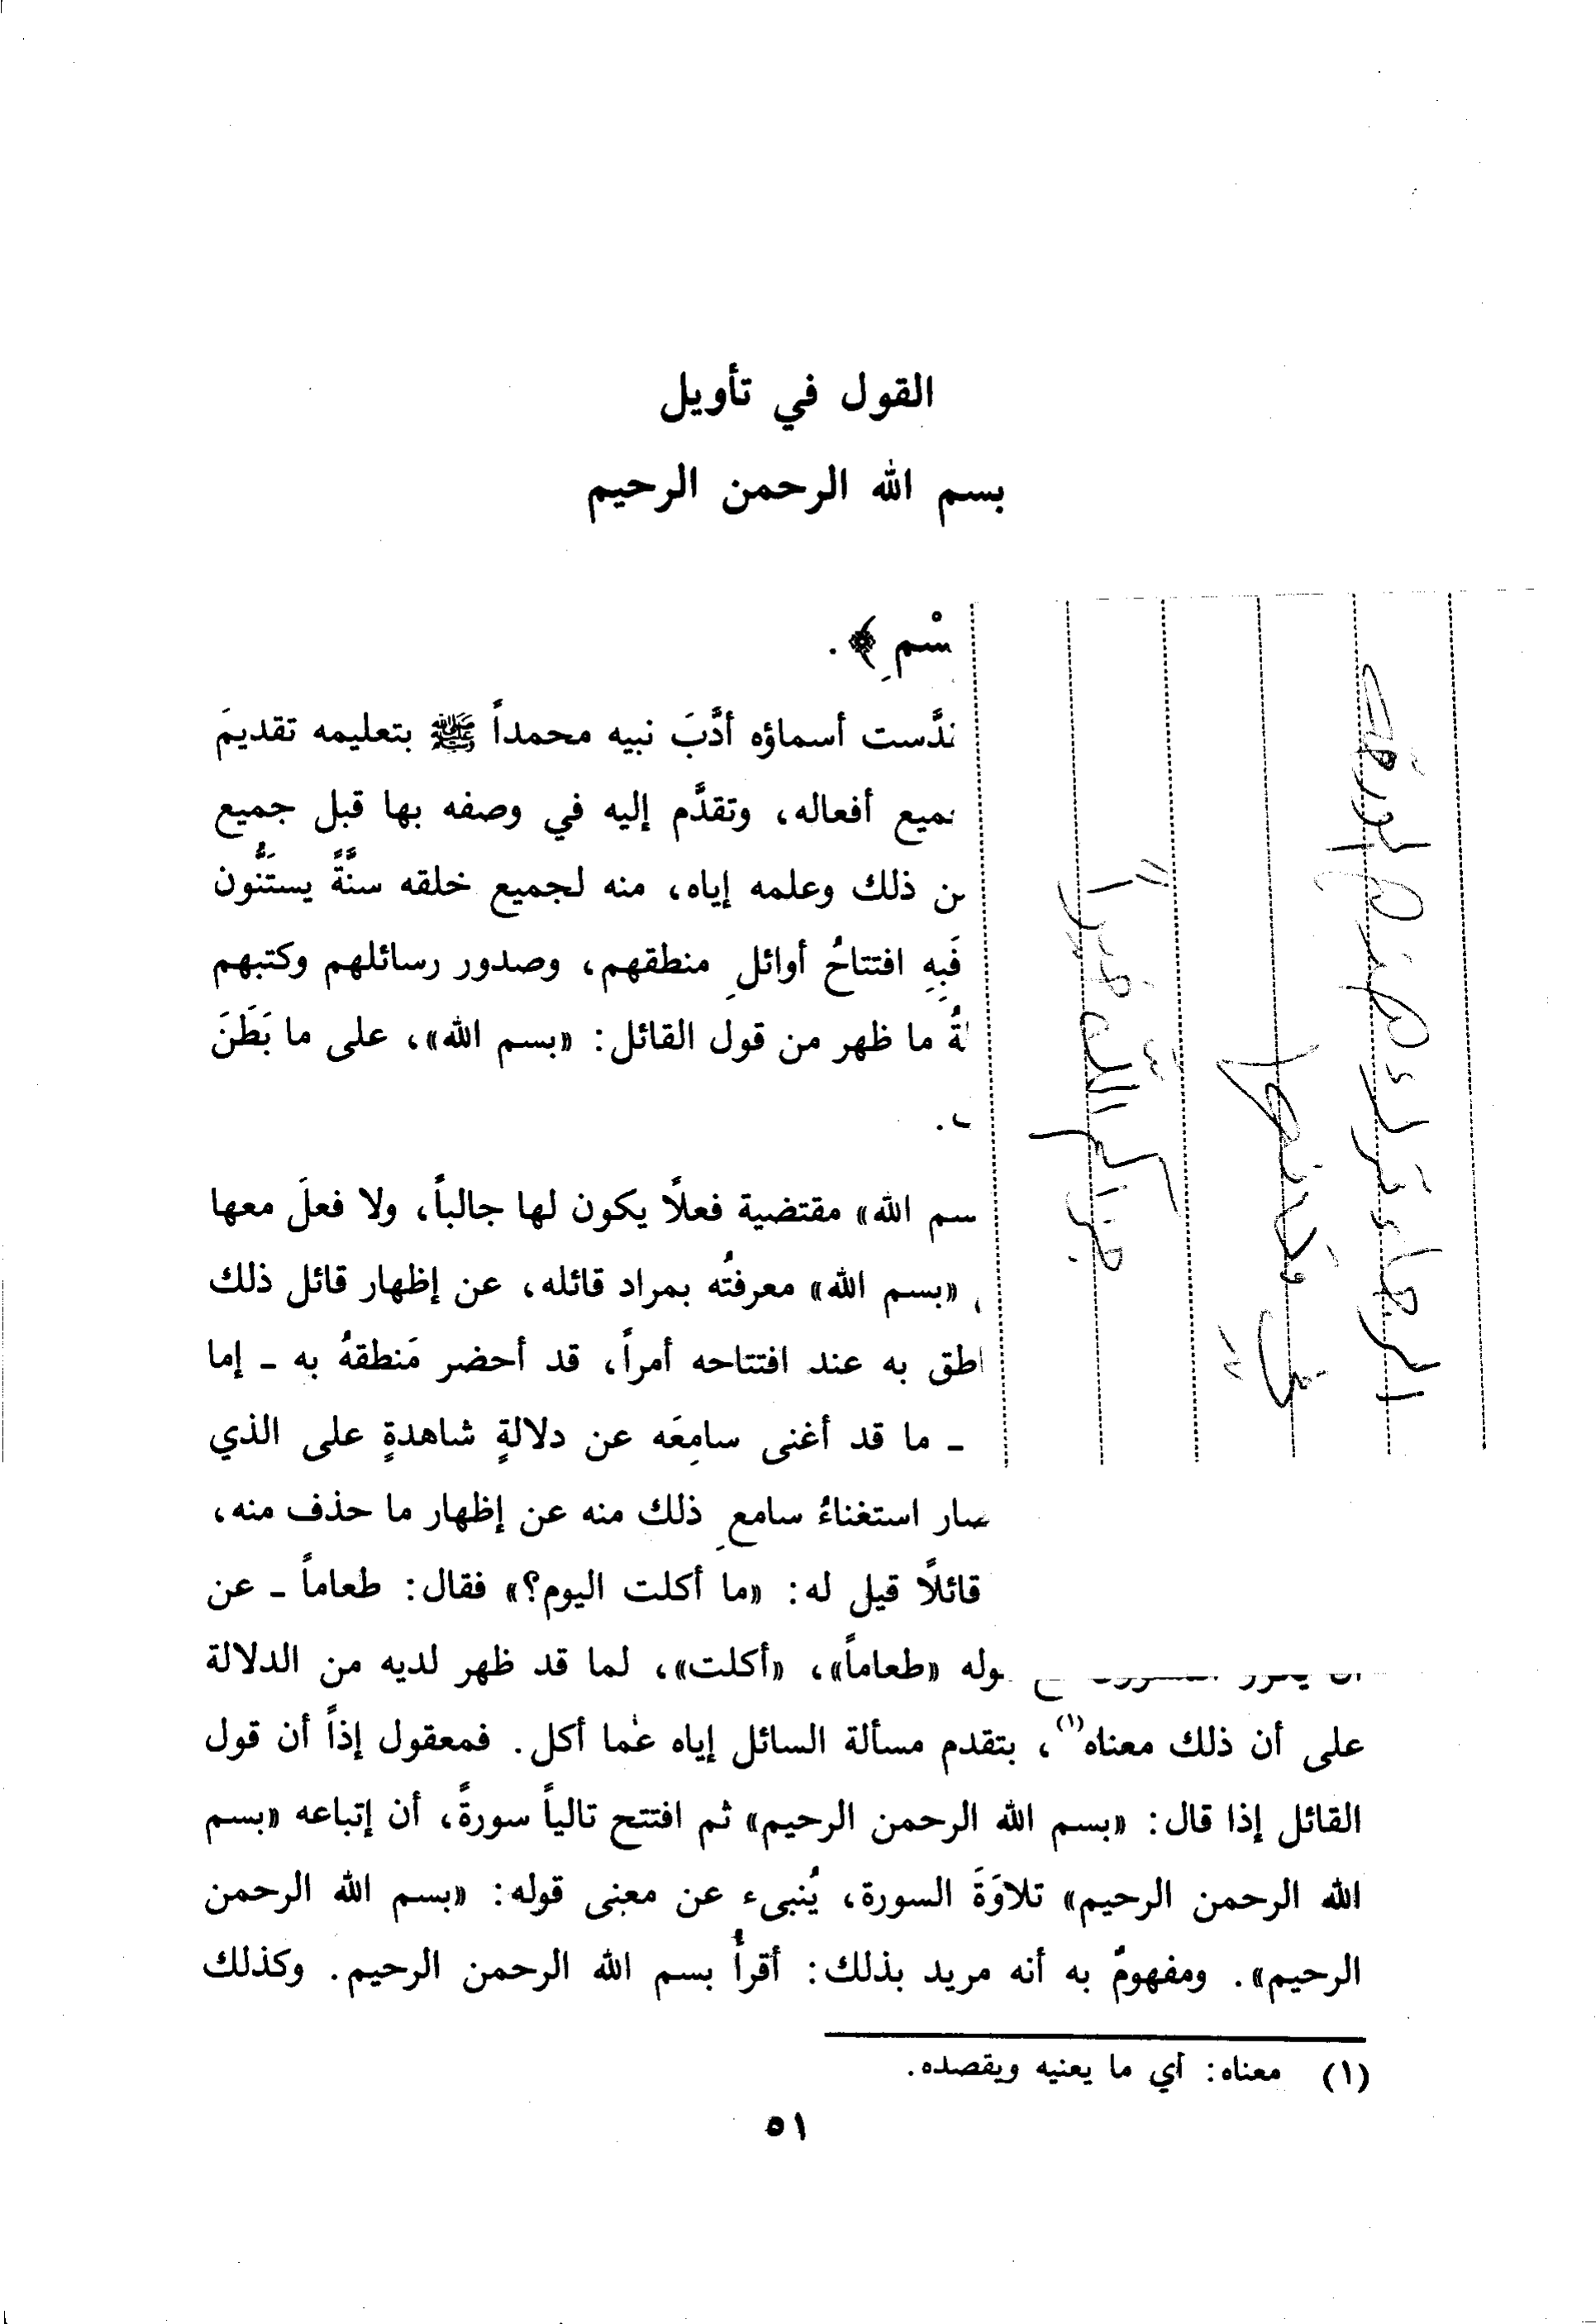 القول في تأويل
بسم الله الرحمن الرحيم
سْمِ ﴾ .
دَّست أسماؤه أدَّبَ نبيه محمداً ﷺ بتعليمه تقديمَ
ميع أفعاله، وتقدَّم إليه في وصفه بها قبل جميع
ن ذلك وعلمه إياه، منه لجميع خلقه سنَّةً يستَنُّون
افتتاحُ أوائلِ منطقهم، وصدور رسائلهم وكتبهم
ةُ ما ظهر من قول القائل: «بسم الله»، على ما بَطَنَ
سم الله» مقتضية فعلًا يكون لها جالباً، ولا فعلَ معها
«بسم الله» معرفتُه بمراد قائله، عن إظهار قائل ذلك
اطق به عند افتتاحه أمراً، قد أحضر مَنطقهُ به ـ إما
ـ ما قد أغنى سامِعَه عن دلالةٍ شاهدةٍ على الذي
صار استغناءُ سامعِ ذلك منه عن إظهار ما حذف منه،
قائلًا قيل له: «ما أكلت اليوم؟» فقال: طعاماً ـ عن
وله «طعاماً»، «أكلت»، لما قد ظهر لديه من الدلالة
على أن ذلك معناه(١)، بتقدم مسألة السائل إياه عما أكل. فمعقول إذاً أن قول
القائل إذا قال: «بسم الله الرحمن الرحيم» ثم افتتح تالياً سورةً، أن إتباعه «بسم
الله الرحمن الرحيم» تلاوَةَ السورة، يُنبىء عن معنى قوله: «بسم الله الرحمن
الرحيم». ومفهومٌ به أنه مريد بذلك: أقرأُ بسم الله الرحمن الرحيم. وكذلك
(١) معناه: أي ما يعنيه ويقصده.
٥١
الرجاء ترك هذه الورقة
في مكانها
جزاكم الله خيراً